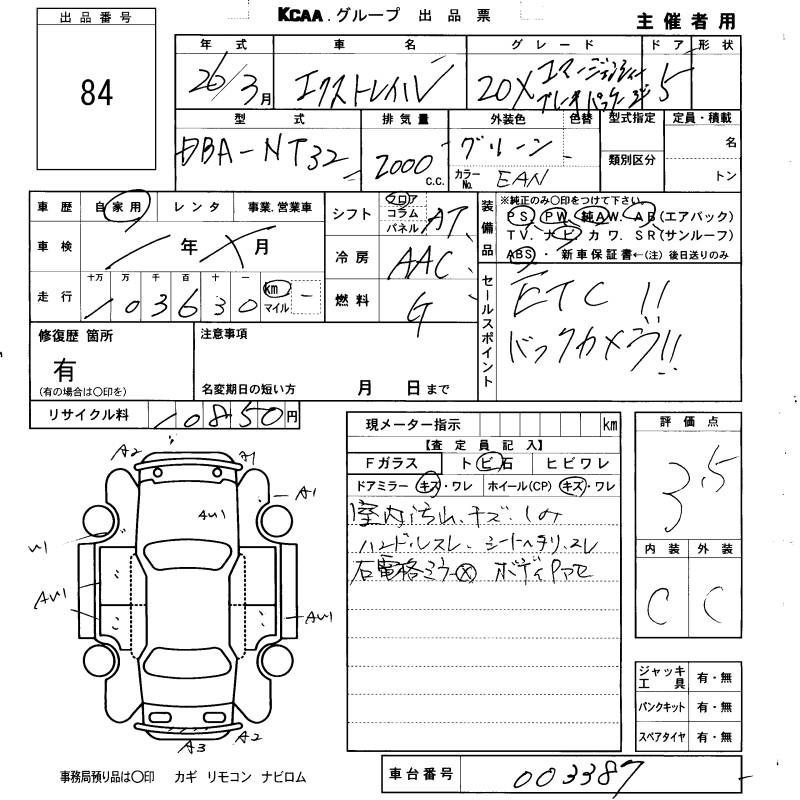 KCAA.グループ 出品票
主催者用
出品番号
84
年式 車名 グレード ドア 形状
26/3月 エクストレイル 20X エマージェンシーブレーキパッケージ 5
型式 排気量 外装色 色替 型式指定 定員・積載
DBA-NT32 2000 C.C. グリーン 名
カラーNo. EAN 類別区分 トン
車歴 自家用 レンタ 事業.営業車
シフト フロア コラム パネル AT
車検 年 月
冷房 AAC
走行 十万 万 千 百 十 一
103630 km マイル
燃料 G
装備品 ※純正のみ〇印をつけて下さい。
PS. PW. 純AW. AB(エアバック)
TV. ナビ. カワ. SR(サンルーフ)
ABS・ 新車保証書←(注) 後日送りのみ
セールスポイント
ETC!!
バックカメラ!!
修復歴 箇所
有
(有の場合は〇印を)
注意事項
名変期日の短い方 月 日まで
リサイクル料 10850円
現メーター指示 km
【査定員記入】
Fガラス トビ石 ヒビワレ
ドアミラー キズ・ワレ ホイール(CP) キズ・ワレ
室内汚れ.キズ.しみ
ハンドルスレ. シートヘタリ.スレ
右電格ミラー✕ ボディ
評価点
3.5
内装 外装
C C
A2
A1
A1
4U1
U1
AU1
AU1
A3
A2
ジャッキ工具 有・無
パンクキット 有・無
スペアタイヤ 有・無
事務局預り品は〇印 カギ リモコン ナビロム
車台番号 003387